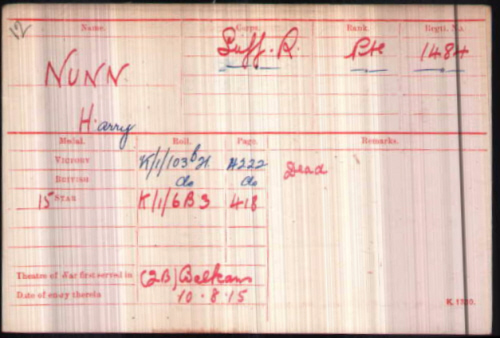 12 Name. Corps. Rank Regtl. No.
NUNN Suff. R. Pte 1484
Harry
Medal. Roll. Page. Remarks.
VICTORY K/1/103 B 4222 Dead
BRITISH do do
15 STAR K/1/6B3 418
Theatre of War first served in (2B) Balkans
Date of entry therein 10.8.15
K. 1380.